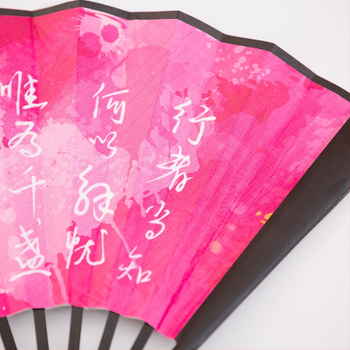 行者当知
何以解忧
唯有千盏